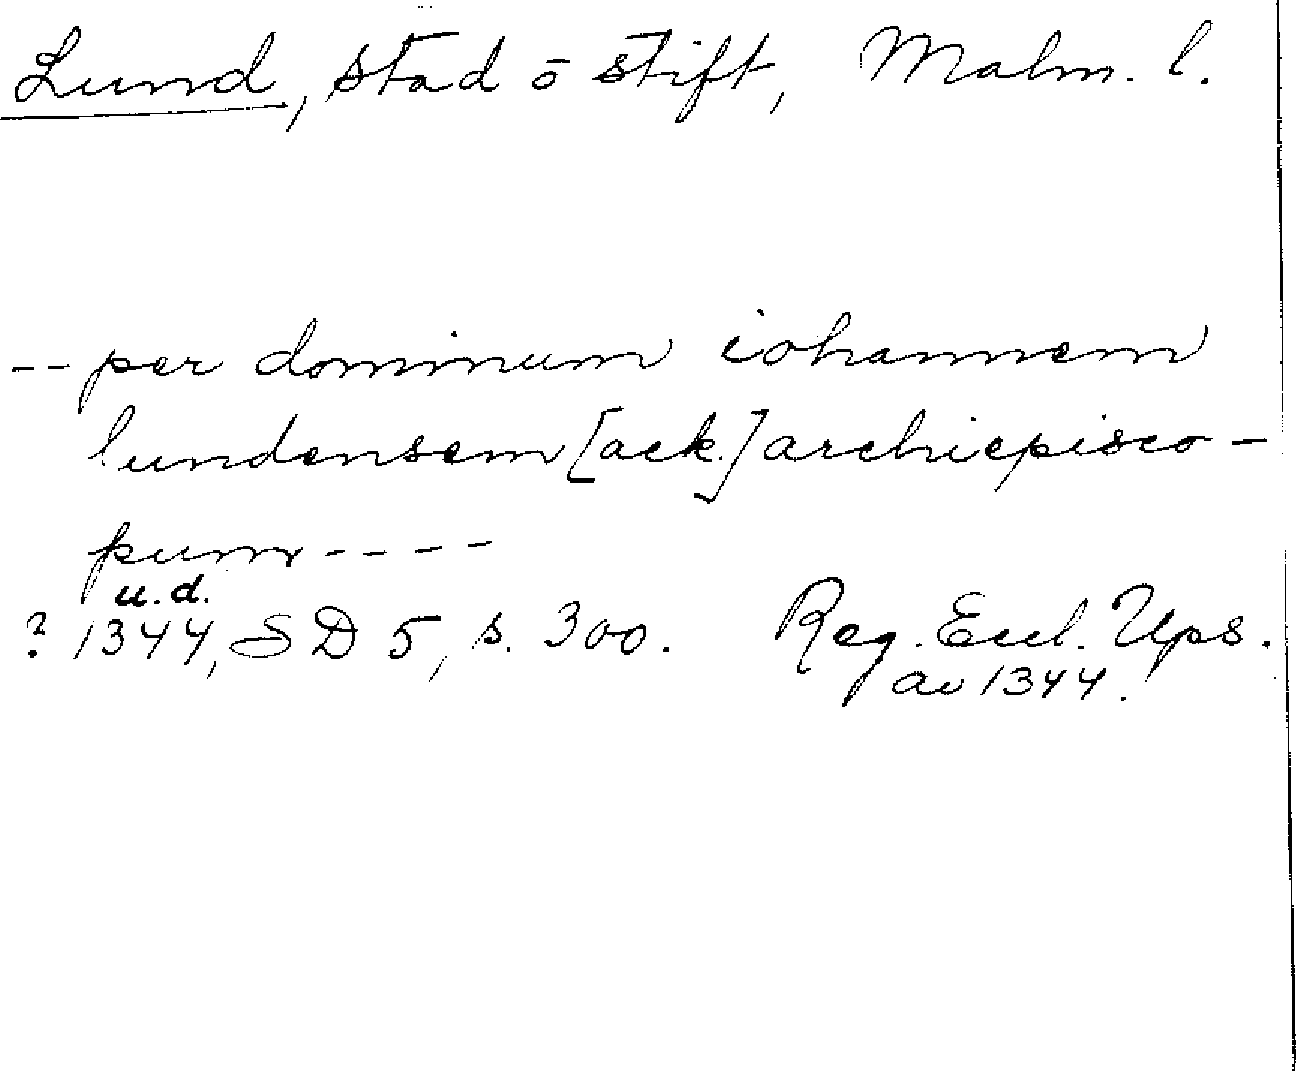 Lund, stad o stift, Malm. l.
-- per dominum iohannem
lundensem [ack.] archiepisco-
pum ----
u.d.
? 1344, SD 5, s. 300. Reg. Eccl. Ups.
av 1344.